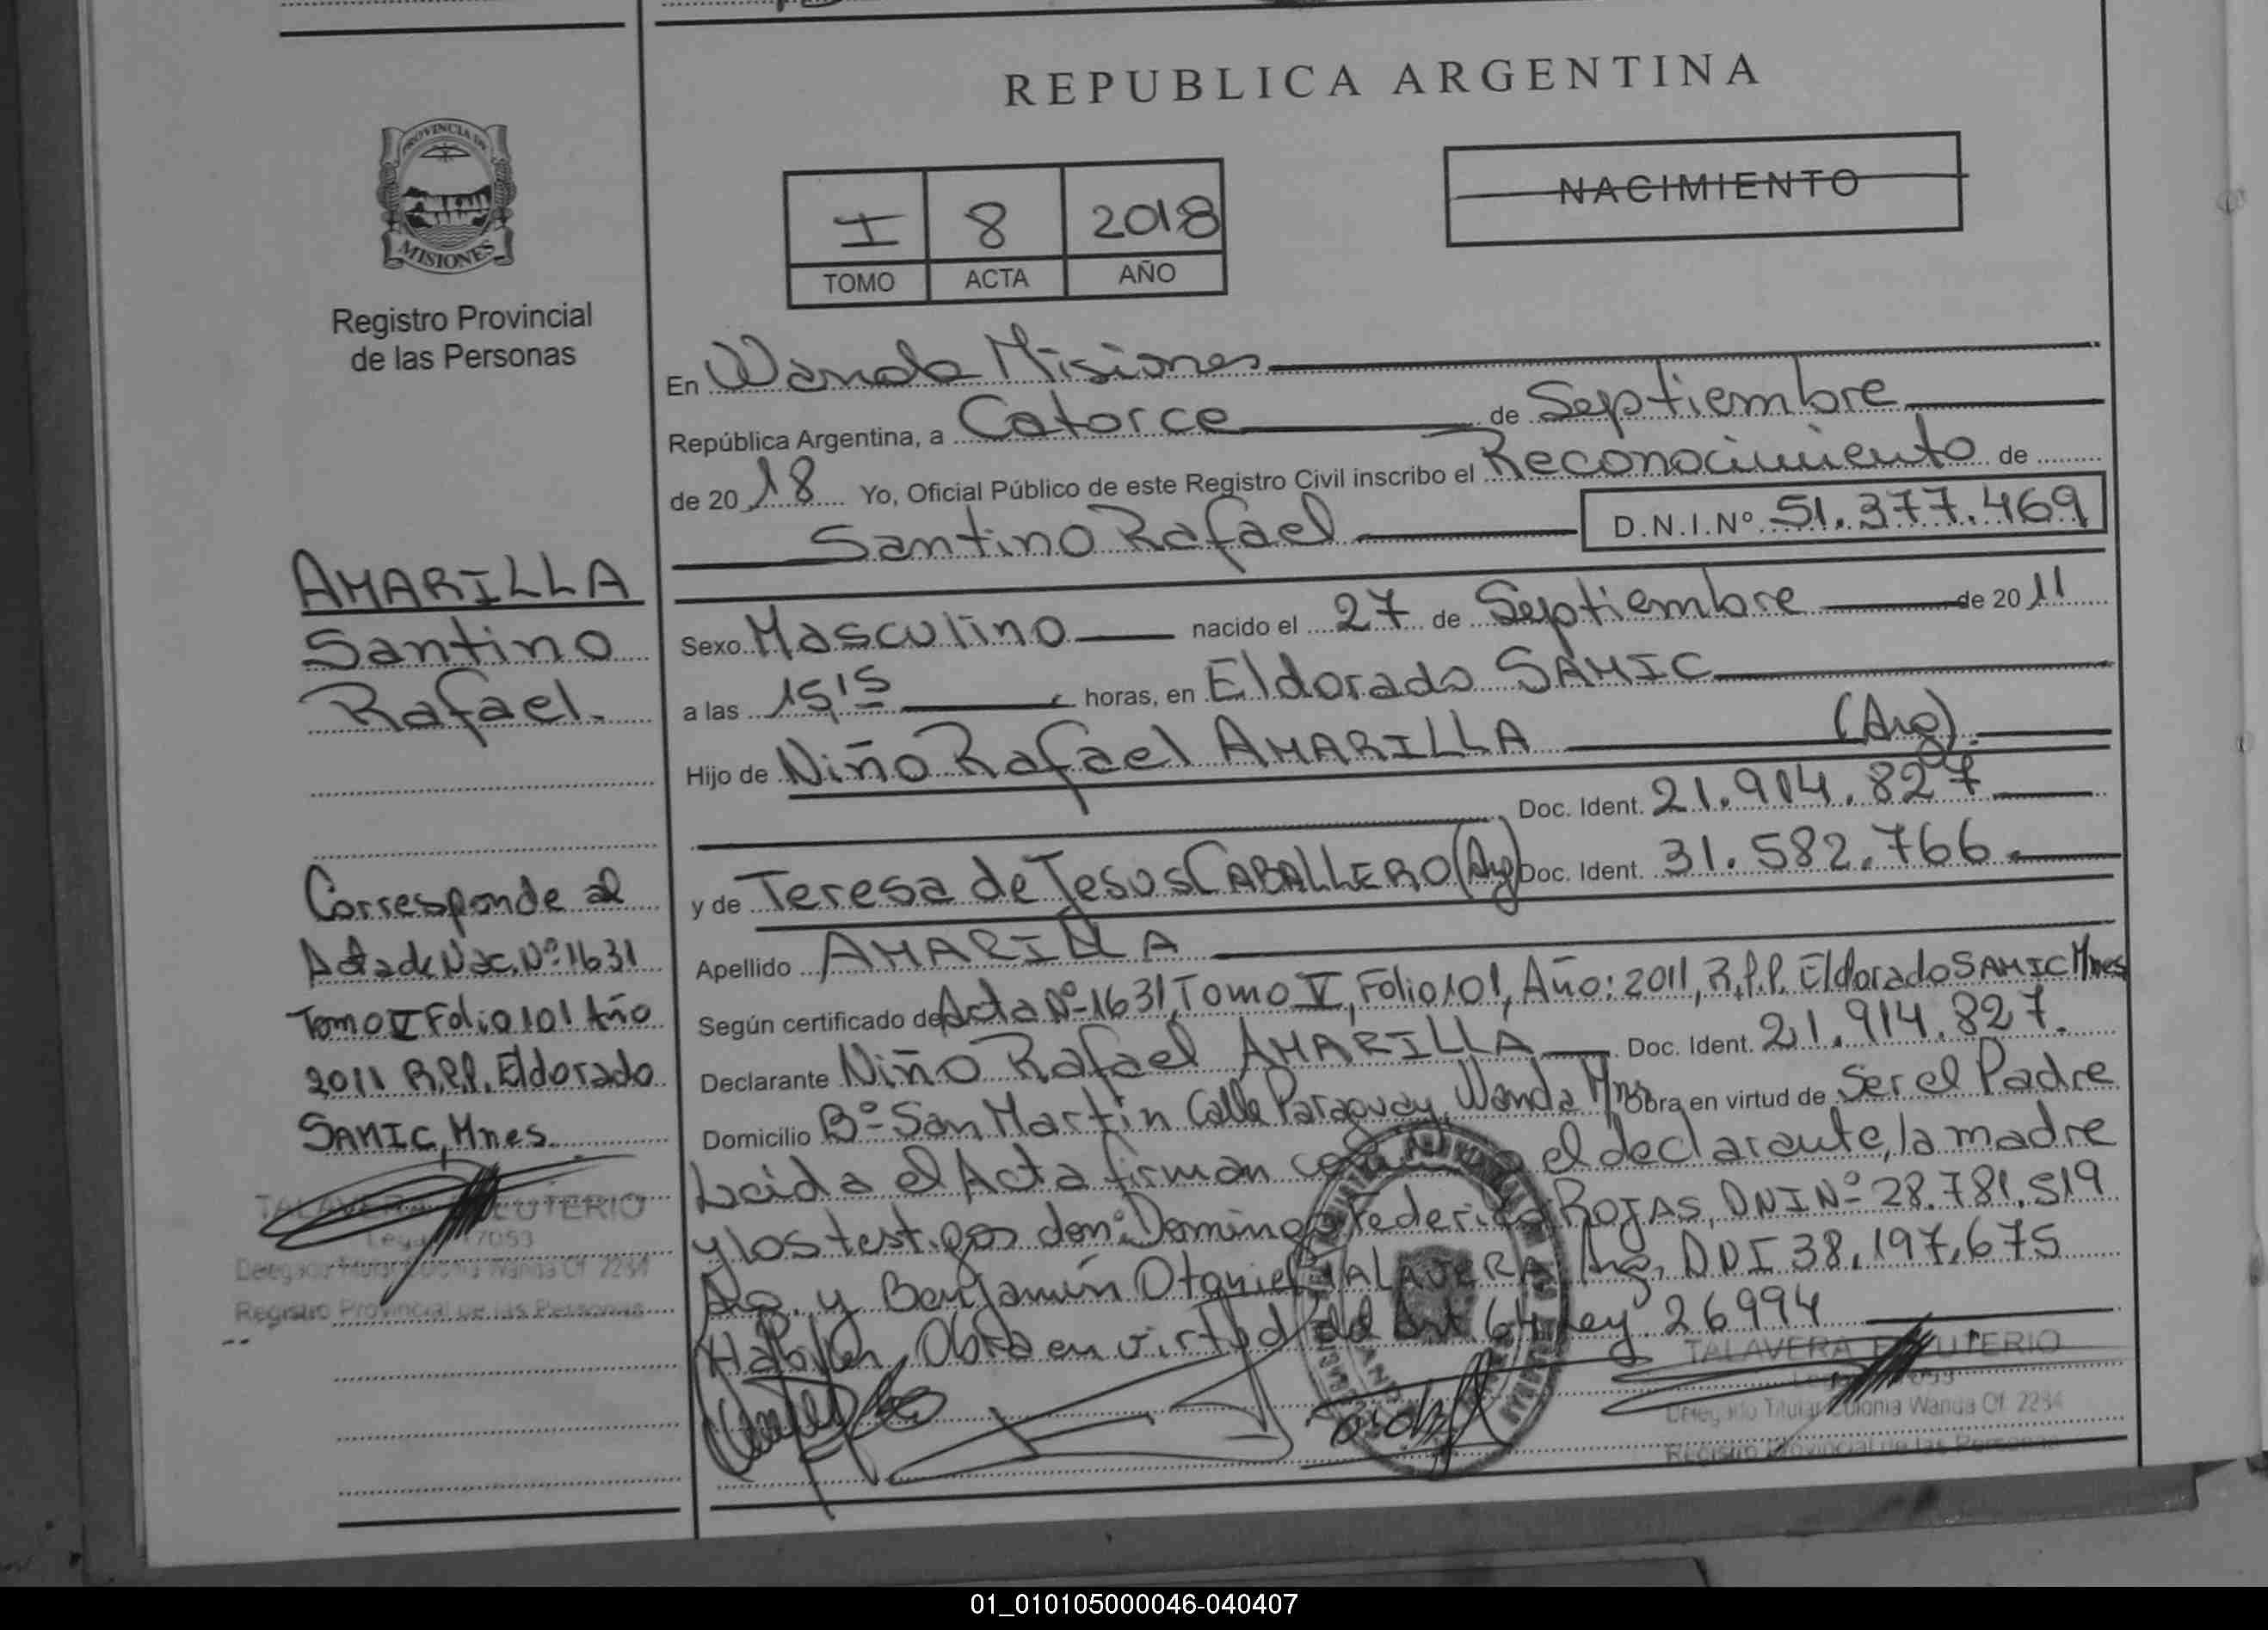 REPUBLICA ARGENTINA
PROVINCIA DE
MISIONES
Registro Provincial
de las Personas
NACIMIENTO
I 8 2018
TOMO ACTA AÑO
En Wanda Misiones
República Argentina, a Catorce de Septiembre
de 20 18 Yo, Oficial Público de este Registro Civil inscribo el Reconocimiento de
Santino Rafael D.N.I.Nº 51.377.469
Sexo Masculino nacido el 27 de Septiembre de 20 11
a las 15,15 horas, en Eldorado SAMIC
Hijo de Niño Rafael AMARILLA (Arg).
Doc. Ident. 21.914.827
y de Teresa de Jesus CABALLERO (Arg) Doc. Ident. 31.582.766.
Apellido AMARILLA
Según certificado de Acta Nº 1631, Tomo V, Folio 101, Año: 2011, R.P.P. Eldorado SAMIC Mnes
Declarante Niño Rafael AMARILLA Doc. Ident. 21.914.827.
Domicilio Bº San Martín Calle Paraguay, Wanda Mnes Obra en virtud de Ser el Padre
Leida el Acta firman el declarante, la madre
y los testigos don: Domingo Federico ROJAS, DNI Nº 28.781.519
Arg. y Benjamín Otoniel TALAVERA Arg, DNI 38.197.675
Habiles, Obra en virtud del Art 64 ley 26994
TALAVERA ELEUTERIO
Delegado Titular Colonia Wanda Of. 2234
Registro Provincial de las Personas
AMARILLA
Santino
Rafael.
Corresponde al
Acta de Nac. Nº 1631
Tomo V Folio 101 Año
2011 R.P.P. Eldorado
SAMIC, Mnes.
TALAVERA ELEUTERIO
Delegado Titular Colonia Wanda Of. 2234
Registro Provincial de las Personas
01_010105000046-040407